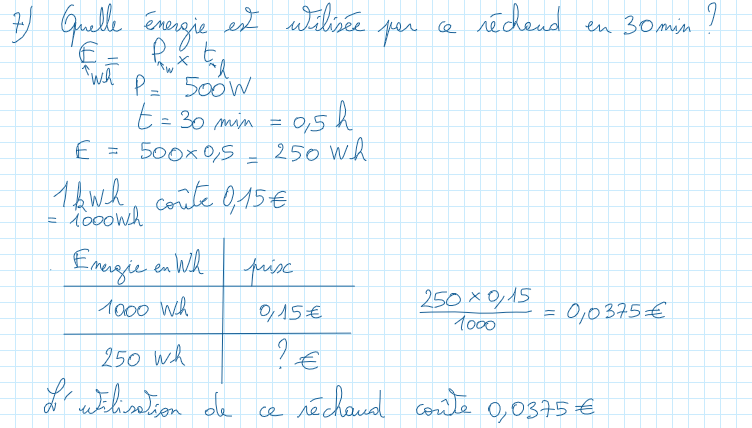 7) Quelle énergie est utilisée par ce réchaud en 30 min ?
E = P × t
↑Wh ↖W ↖h
P = 500W
t = 30 min = 0,5 h
E = 500×0,5 = 250 Wh
1kWh coûte 0,15€
= 1000Wh
Energie en Wh prix
1000 Wh 0,15€
250 × 0,15 / 1000 = 0,0375€
250 Wh ? €
L'utilisation de ce réchaud coûte 0,0375€